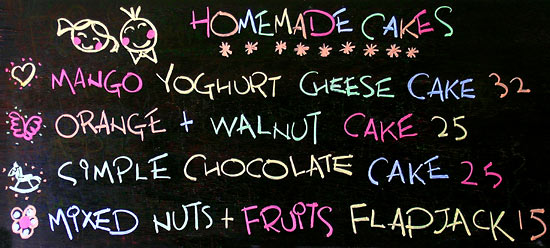 HOMEMADE CAKES
MANGO YOGHURT CHEESE CAKE 32
ORANGE + WALNUT CAKE 25
SIMPLE CHOCOLATE CAKE 25
MIXED NUTS + FRUITS FLAPJACK 15